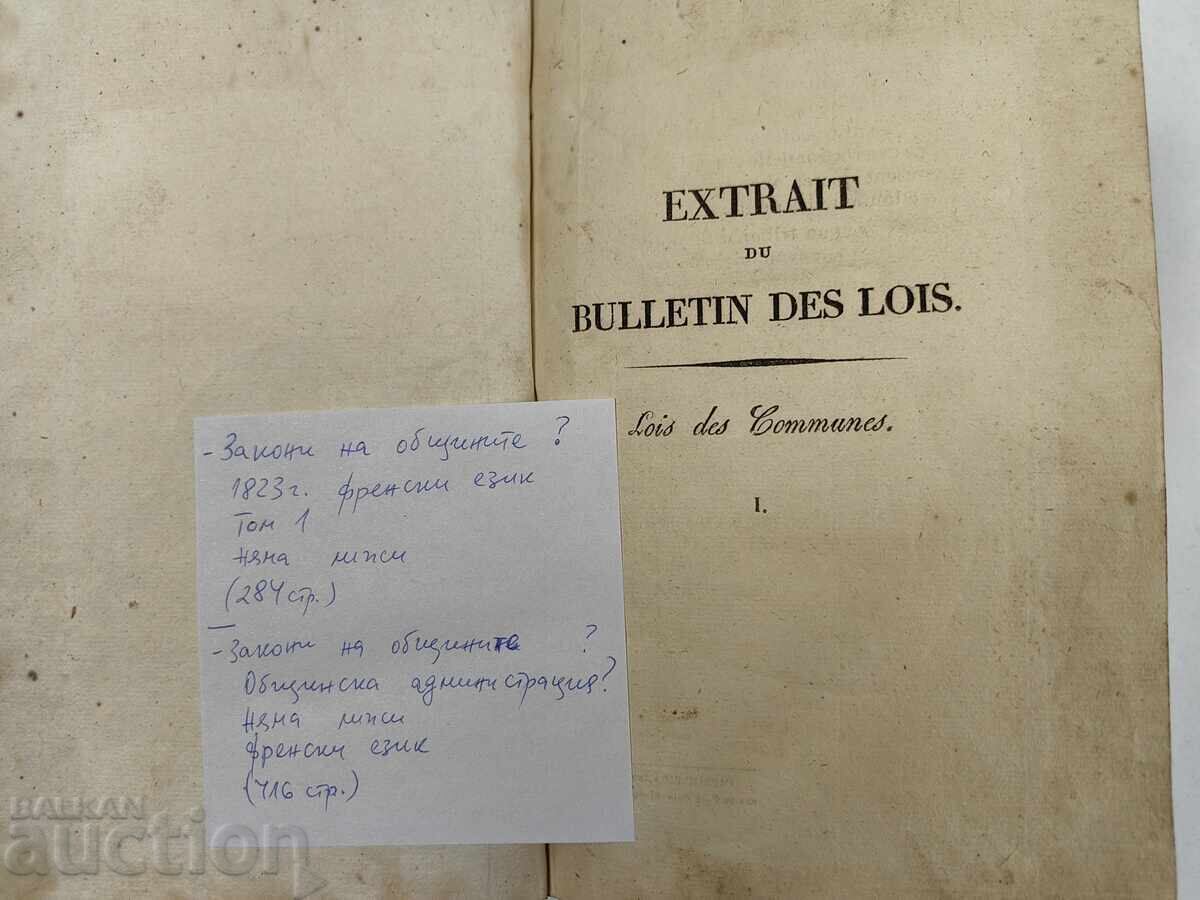 EXTRAIT
DU
BULLETIN DES LOIS.
Lois des Communes.
I.
- Закони на общините ?
1823 г. френски език
Том 1
няма липси
(284 стр.)
- Закони на общините ?
Общинска администрация?
няма липси
френски език
(716 стр.)
BALKAN
auction